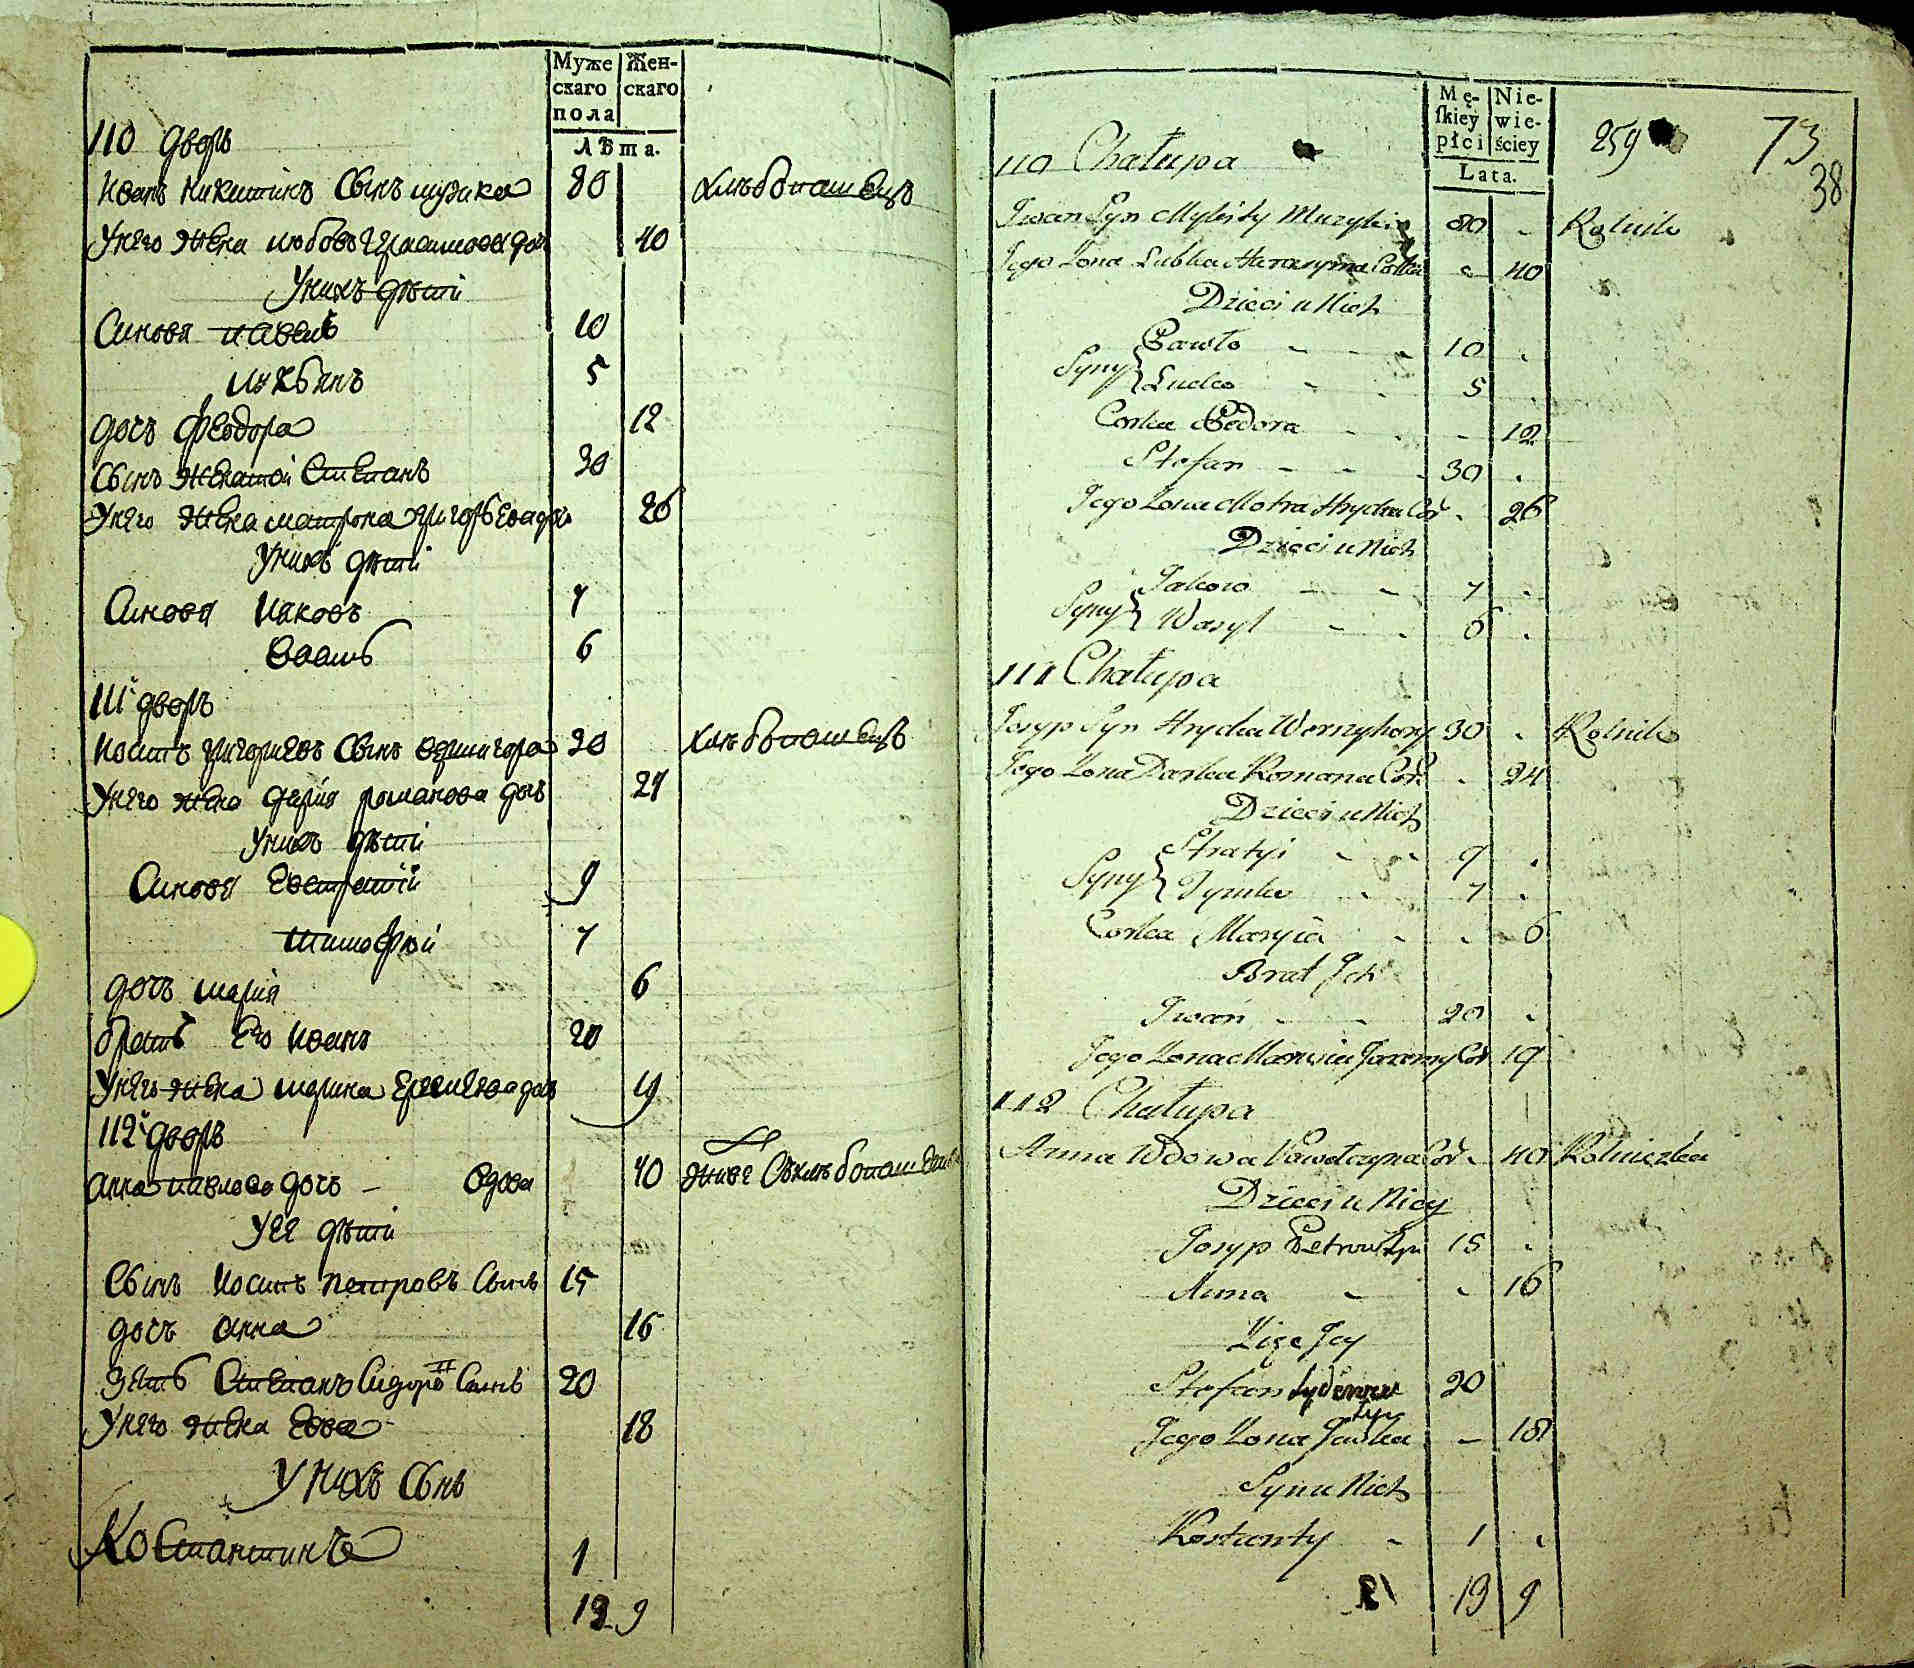 Муже
скаго
пола
Жен-
скаго
Лѣта.
110 дворъ
Иванъ Никитинъ Сынъ музика 80 хлебопашецъ
Унего жена любовь Герасимова доч 40
Унихъ дѣти
Синовя павелъ 10
лукянъ 5
дочъ феодора 12
Сынъ женатой Степанъ 30
Унего жена матрона григорьева доч 26
Унихъ дѣти
Синовя Иаковъ 7
6
111 дворъ
Иосипъ григориевъ Сынъ вернигора 30 хлебопашецъ
Унего жена дария романова дочъ 24
Унихъ дѣти
Синовя Евстратий 9
тимофей 7
дочъ мария 6
братъ Его Иванъ 20
Унего жена марина Еремеева дочъ 19
112 дворъ
анна павлова дочъ – вдова 40
Уее дѣти
Сынъ Иосипъ петровъ Сынъ 15
дочъ анна 16
зять Степанъ Сидоров Синъ 20
Унего жена Евва 18
Унихъ Сынъ
Костантинъ 1
13 9
Mę-
skiey
płci
Nie-
wie-
ściey
Lata.
259 73
38
110 Chałupa
Iwan Syn Mykity Muzyki 80 - Rolnik
Jego Zona Lubka Harasyma Corka - 40
Dzieci u Nich
Pawło - - - 10 -
Syny
Lucko - - 5
Corka Fedora - - - 12
Stefan - - - 30 -
Jego Zona Motra Hrycka Cor - 26
Dzieci u Nich
Jakow - - 7 -
Syny
Wasyl - - 6 -
111 Chałupa
Josyp Syn Hrycka Wernyhory 30 - Rolnik
Jego Zona Daska Romana Cor - 24
Dzieci u Nich
Stratyi - - 9 -
Syny
Tymko - 7 -
Corka Maryia - - - 6
Brat Ich
Iwan - - 20 -
Jego Zona Maryna Jaremy Cor 19
112 Chałupa
Anna Wdowa Pawołczyna Cor - 40 Rolniczka
Dzieci u Niey
Josyp Petrow Syn 15 -
Anna - - 16
Zięc Jey
Stefan 20
Syn
Jego Zona Jewka - 18
Syn u Nich
Kostanty - 1 -
13 9